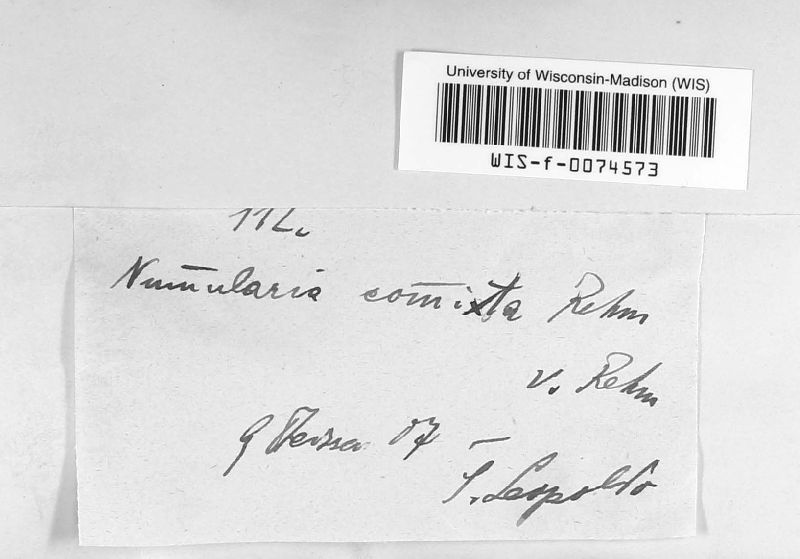 University of Wisconsin-Madison (WIS)
WIS-f-0074573
112.
Num̄ularia com̄ixta Rehm
v. Rehm
07 –
S. Leopoldo